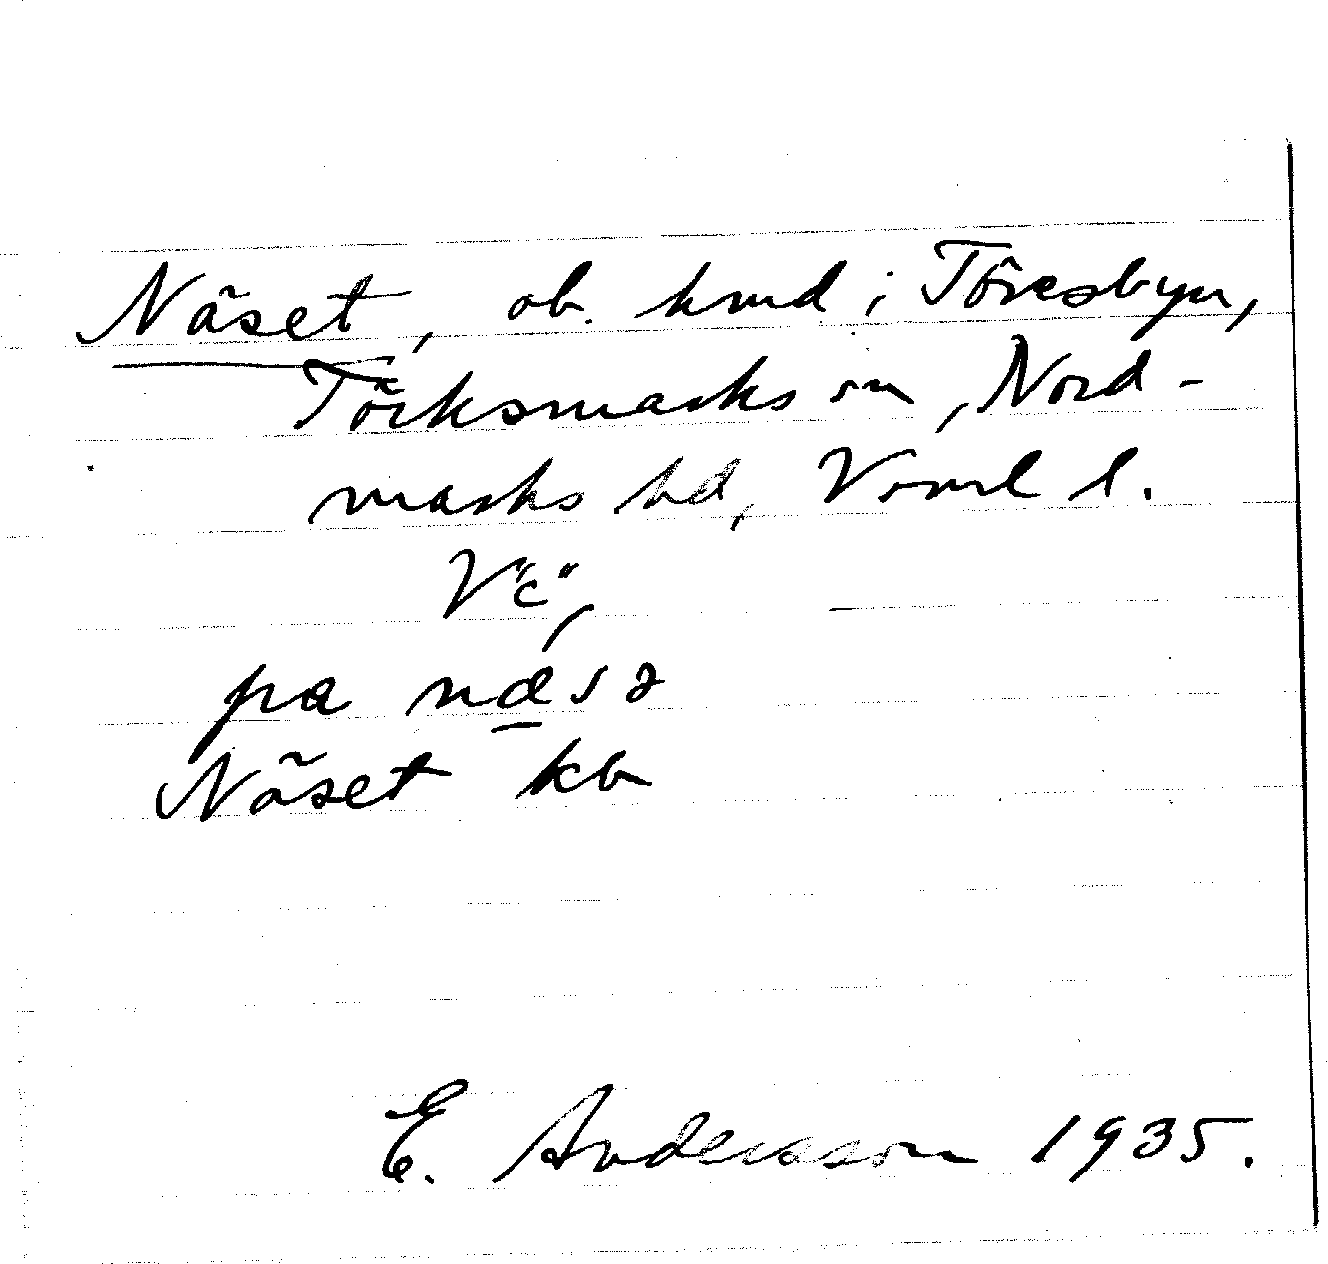 Näset, ob. hmd i Töresbyn,
Törksmarks sn, Nord-
marks hd, Verml l.
V"c",
pa näsə
Näset kb
E. Andersson 1935.